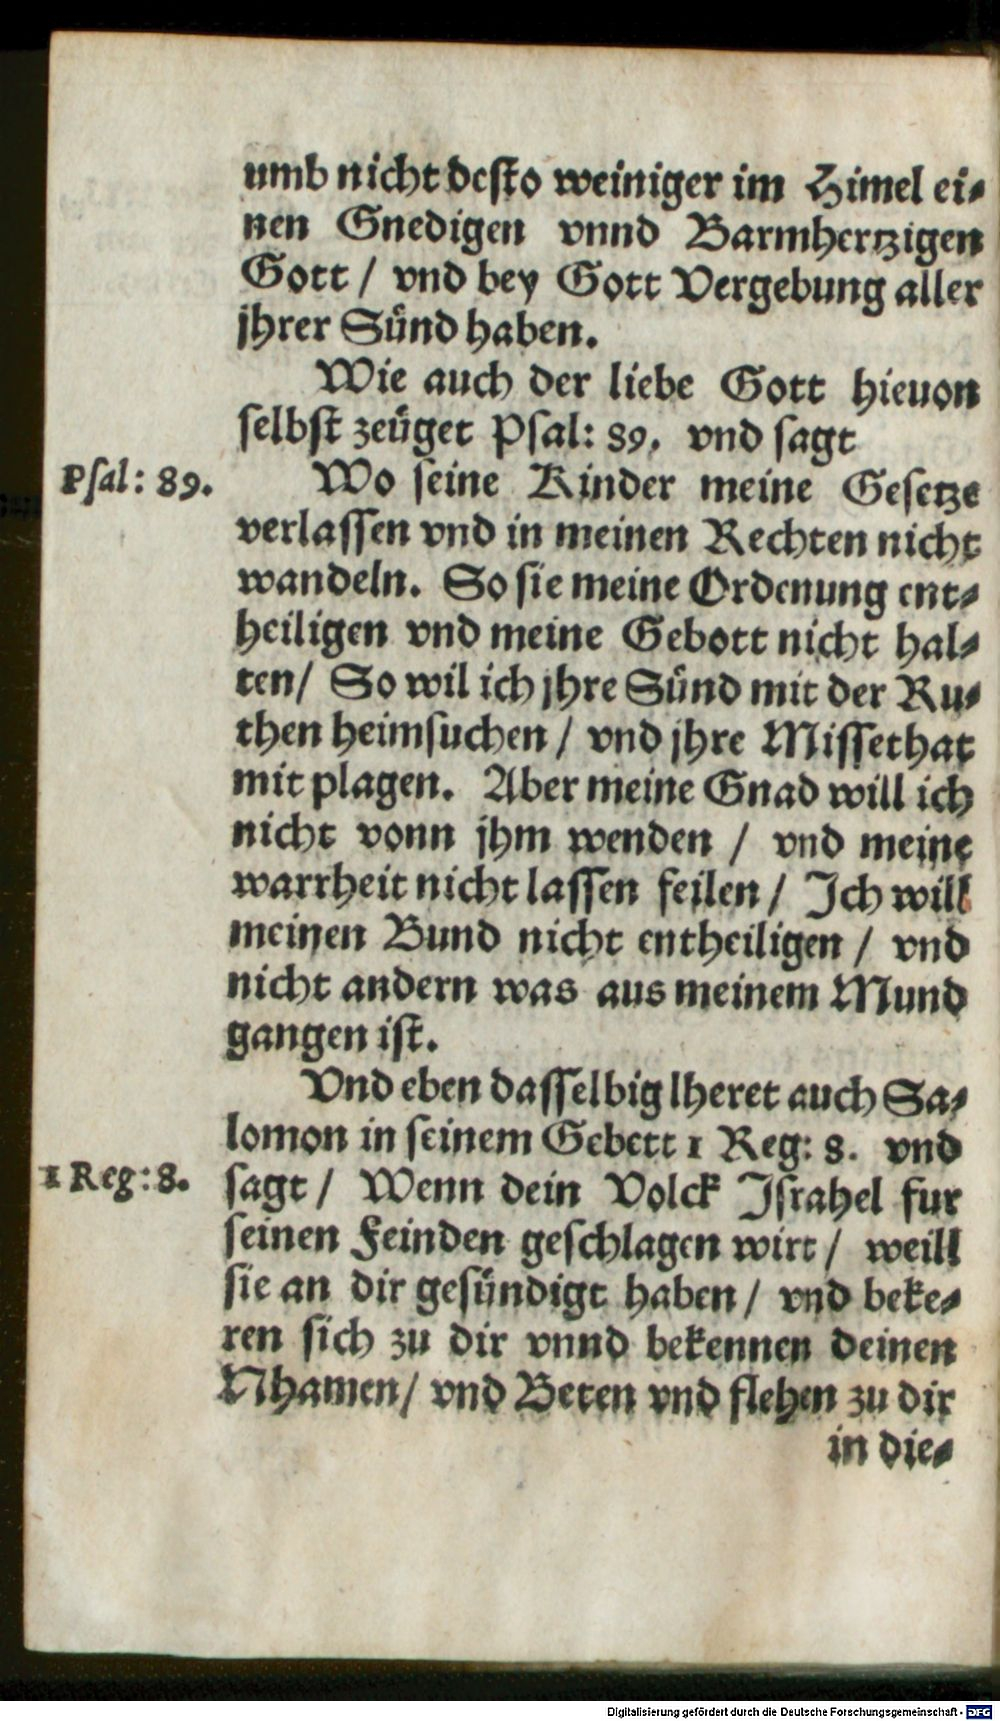 umb nicht desto weiniger im Himel ei⸗
nen Gnedigen vnnd Barmhertzigen
Gott / vnd bey Gott Vergebung aller
jhrer Sünd haben.
Wie auch der liebe Gott hieuon
selbst zeüget Psal: 89. vnd sagt
Psal: 89.
Wo seine Kinder meine Gesetze
verlassen vnd in meinen Rechten nicht
wandeln. So sie meine Ordenung ent⸗
heiligen vnd meine Gebott nicht hal⸗
ten/ So wil ich jhre Sünd mit der Ru⸗
then heimsuchen / vnd jhre Missethat
mit plagen. Aber meine Gnad will ich
nicht vonn jhm wenden / vnd meine
warrheit nicht lassen feilen / Ich will
meinen Bund nicht entheiligen / vnd
nicht andern was aus meinem Mund
gangen ist.
Vnd eben dasselbig lheret auch Sa⸗
lomon in seinem Gebett 1 Reg: 8. vnd
1 Reg: 8.
sagt / Wenn dein Volck Israhel fur
seinen Feinden geschlagen wirt / weill
sie an dir gesündigt haben / vnd beke⸗
ren sich zu dir vnnd bekennen deinen
Nhamen/ vnd Beten vnd flehen zu dir
in die⸗
Digitalisierung gefördert durch die Deutsche Forschungsgemeinschaft - DFG